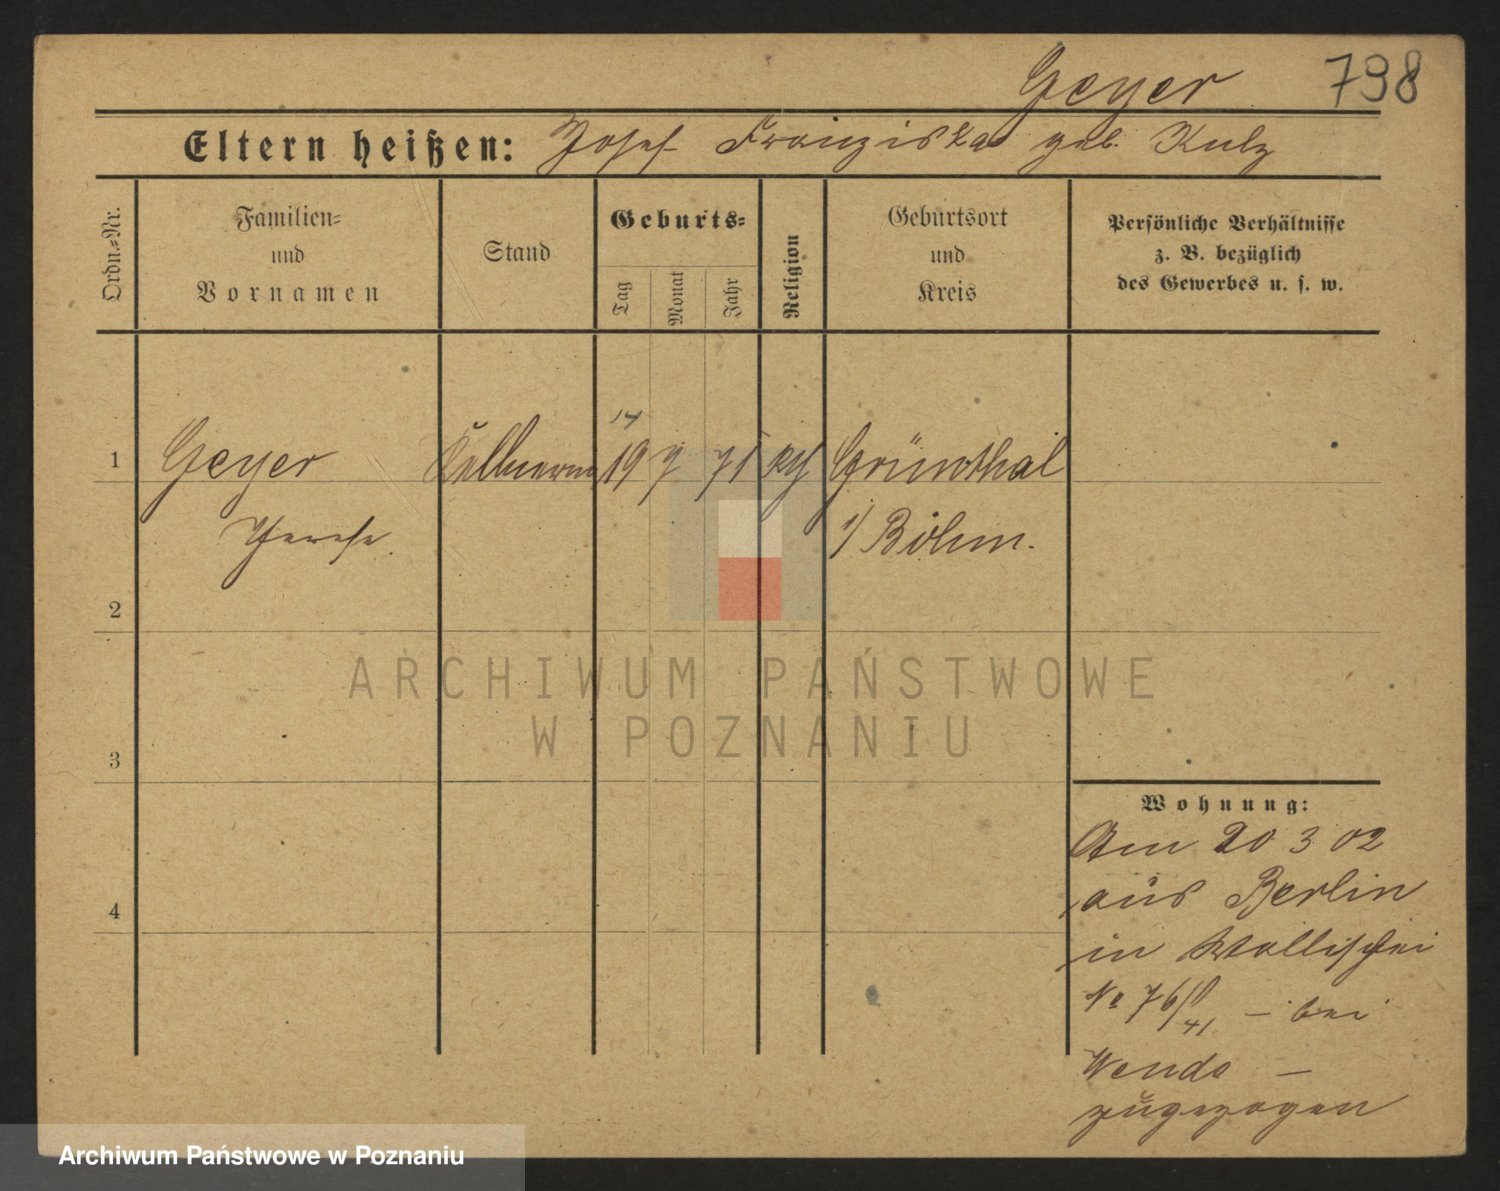 Geyer 798
Eltern heißen: Josef Franziska geb. Kulz
Ordn.=Nr.
Familien=
und
Vornamen
Stand
Geburts=
Tag
Monat
Jahr
Religion
Geburtsort
und
Kreis
Persönliche Verhältnisse
z. B. bezüglich
des Gewerbes u. s. w.
14
1 Geyer Kellnerin 19 7 71 kth Grünthal
Therese i/ Böhm.
2
3
4
Wohnung:
Am 20 3 02
aus Berlin
in Wallischei
No 76/
41 – bei
Wenda –
zugezogen
ARCHIWUM PAŃSTWOWE
W POZNANIU
Archiwum Państwowe w Poznaniu